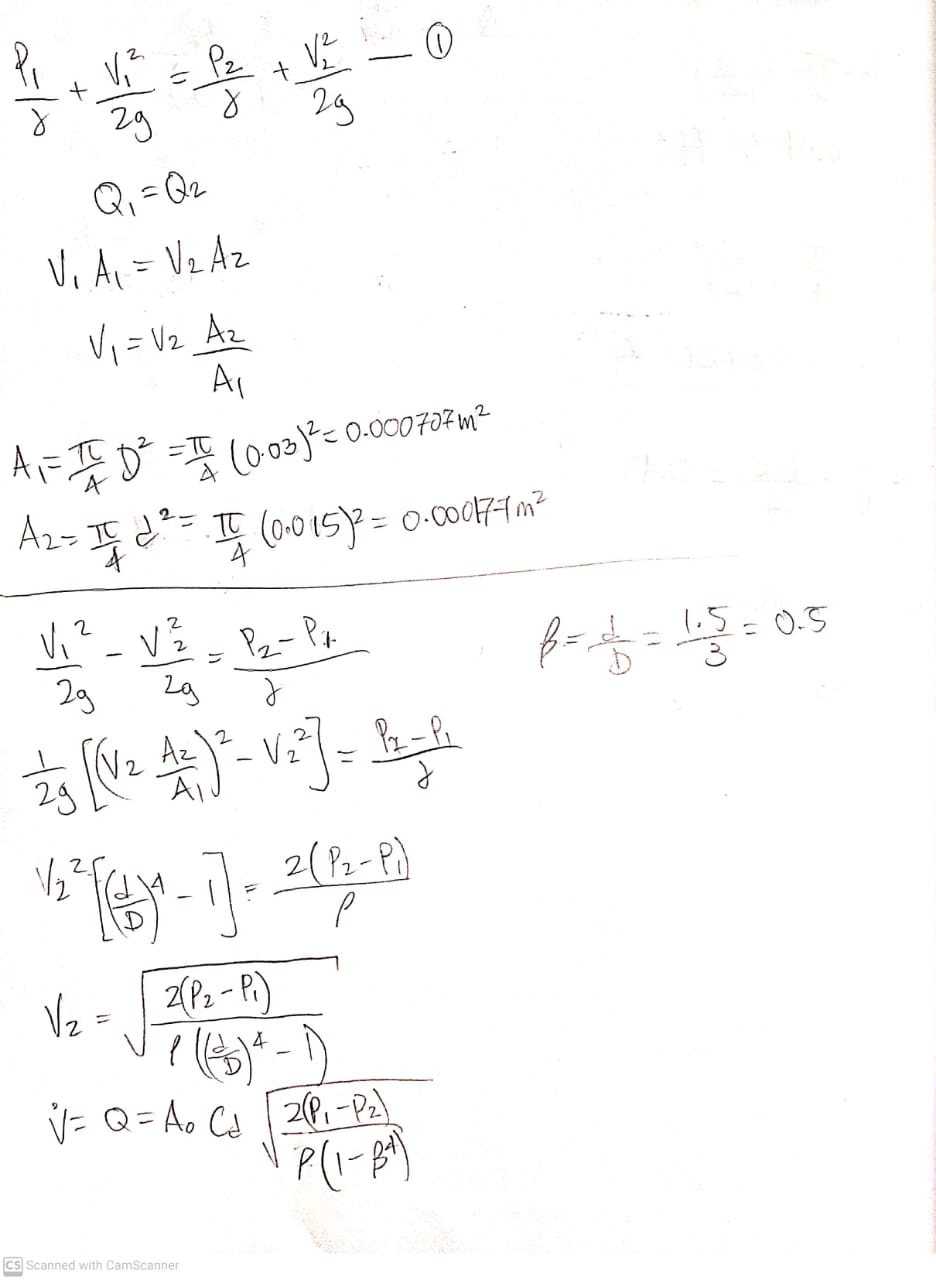 P₁/γ + V₁²/2g = P₂/γ + V₂²/2g — ①
Q₁ = Q₂
V₁ A₁ = V₂ A₂
V₁ = V₂ A₂/A₁
A₁ = π/4 D² = π/4 (0.03)² = 0.000707 m²
A₂ = π/4 d² = π/4 (0.015)² = 0.000177 m²
V₁²/2g - V₂²/2g = P₂ - P₁/γ
β = d/D = 1.5/3 = 0.5
1/2g [(V₂ A₂/A₁)² - V₂²] = P₂ - P₁/γ
V₂² [(d/D)⁴ - 1] = 2(P₂ - P₁)/ρ
V₂ = √(2(P₂ - P₁)/ρ((d/D)⁴ - 1))
V̇ = Q = A₀ Cd √(2(P₁ - P₂)/ρ(1 - β⁴))
CS Scanned with CamScanner